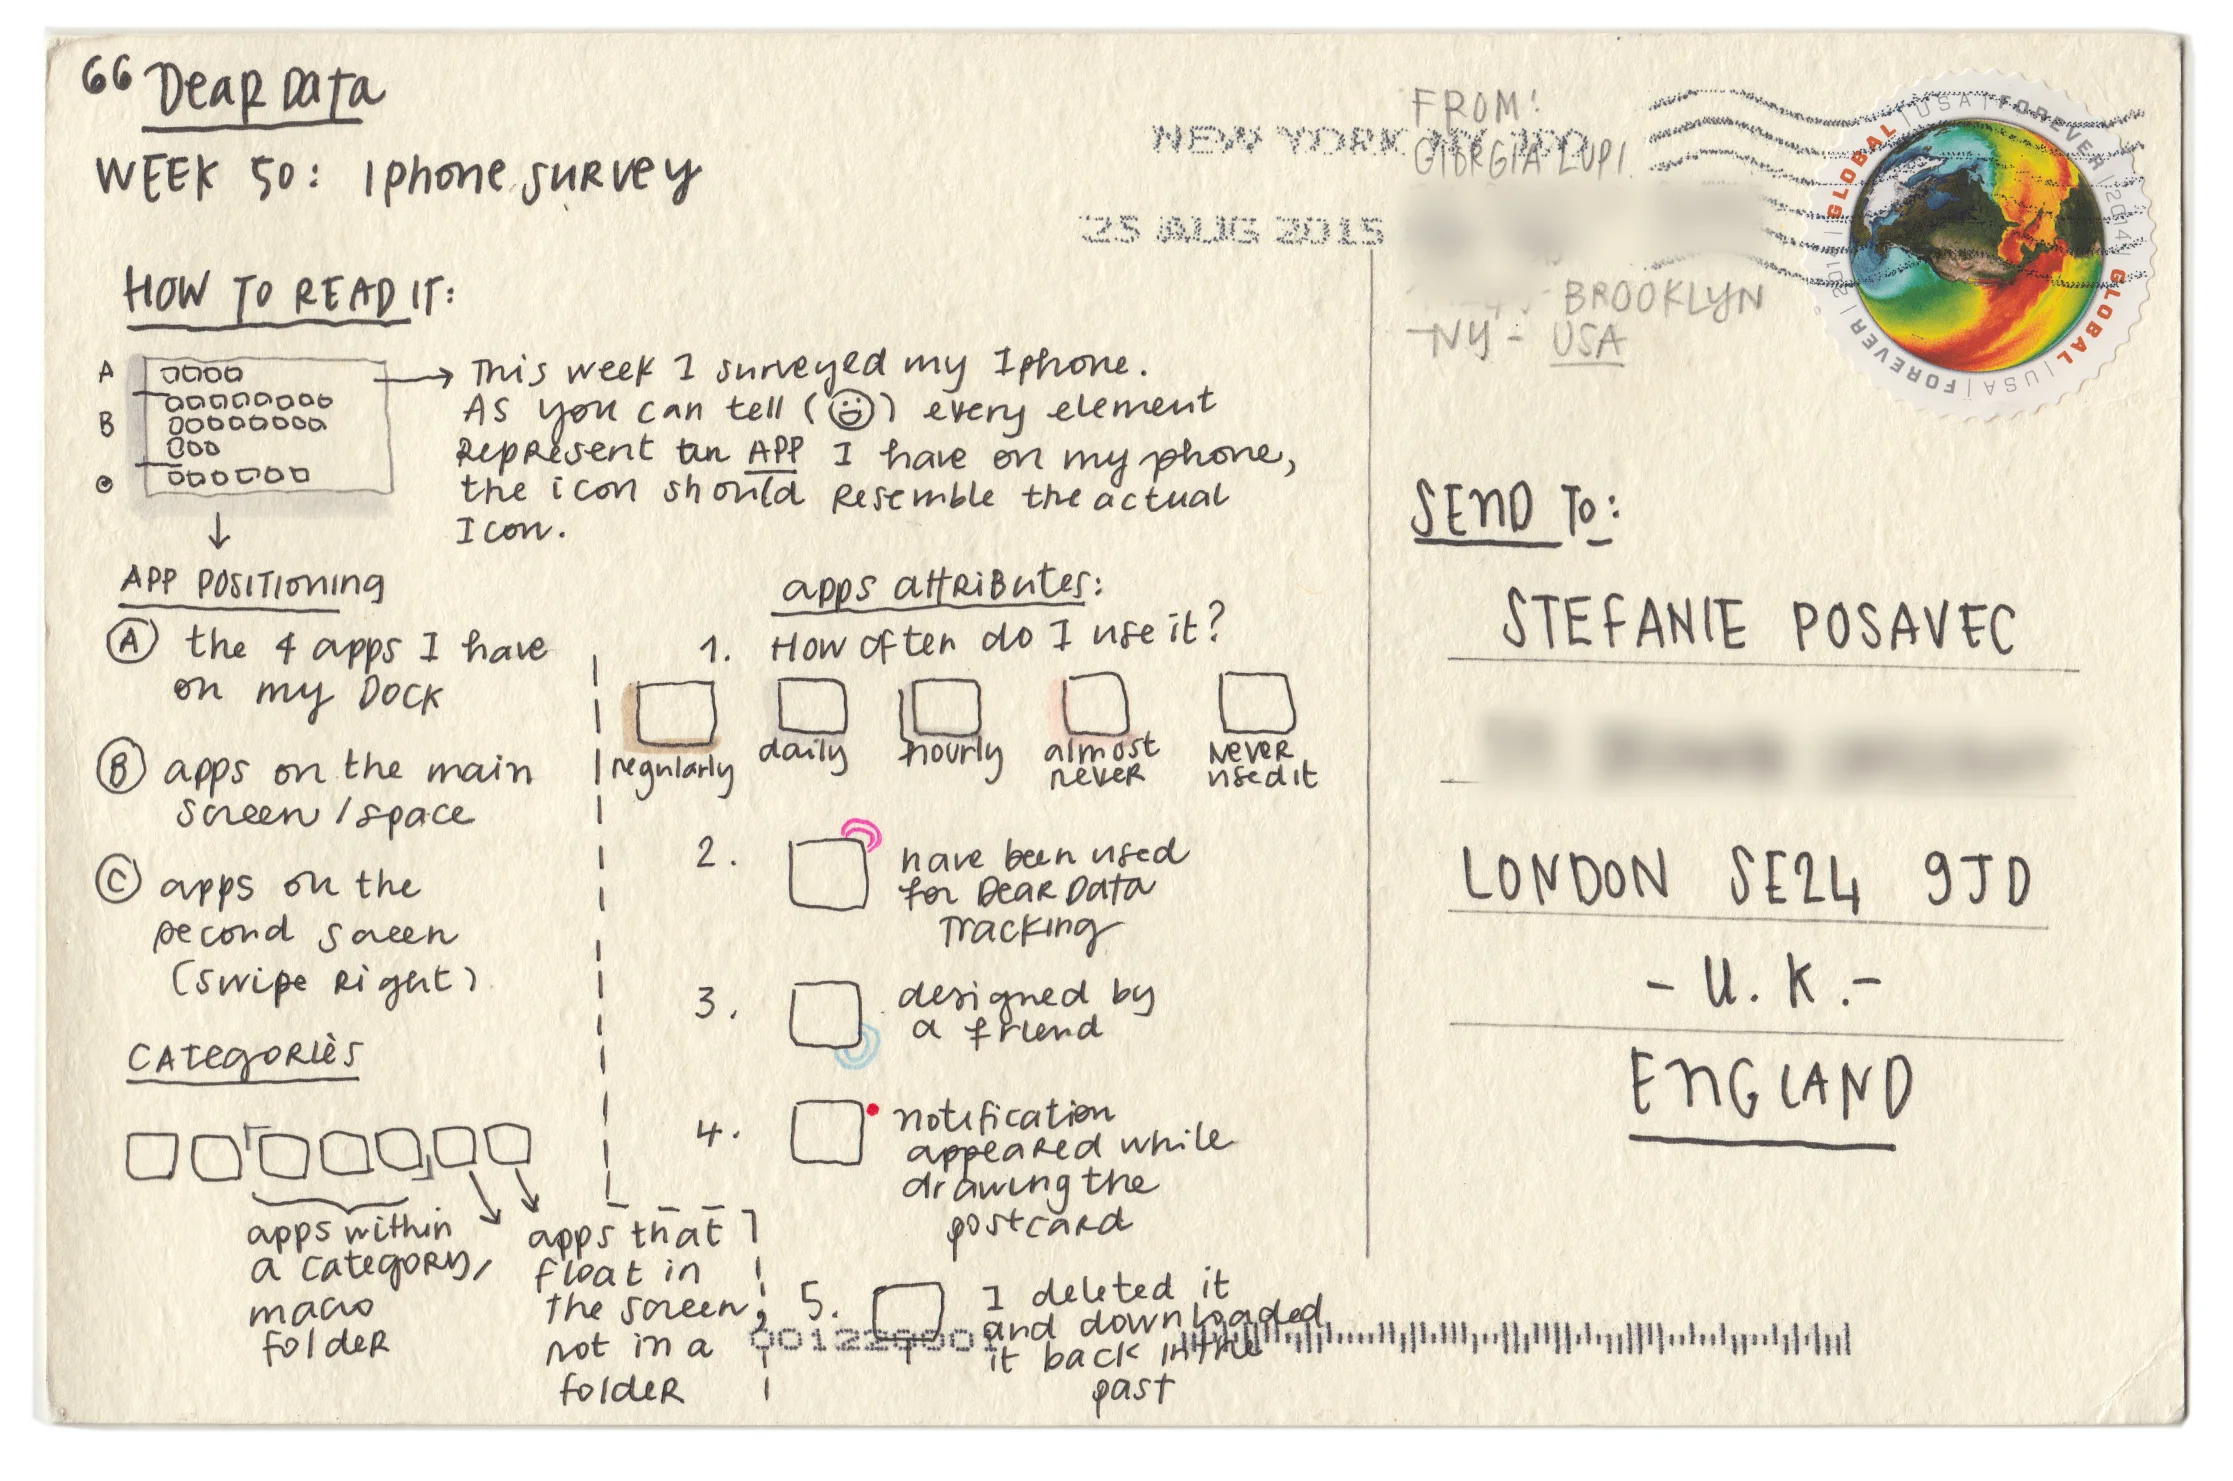 66 DEAR DATA
WEEK 50: Iphone survey
HOW TO READ IT:
A
B
This week I surveyed my Iphone.
As you can tell ( ) every element
represent an APP I have on my phone,
the icon should resemble the actual
Icon.
APP POSITIONING
A the 4 apps I have
on my DOCK
B apps on the main
screen / space
C apps on the
second screen
(swipe right)
CATEGORIES
apps within
a category,
macro
folder
apps that
float in
the screen,
not in a
folder
apps attributes:
1. How often do I use it?
regularly
daily
hourly
almost
never
never
used it
2. have been used
for DEAR DATA
TRACKING
3. designed by
a friend
4. notification
appeared while
drawing the
postcard
5. I deleted it
and downloaded
it back in the
past
FROM:
GIORGIA LUPI
NEW YORK NY 100
25 AUG 2015
BROOKLYN
-NY - USA
GLOBAL | USA | FOREVER | 2014 | GLOBAL | USA | FOREVER | 2014 |
SEND TO:
STEFANIE POSAVEC
LONDON SE24 9JD
- U.K. -
ENGLAND